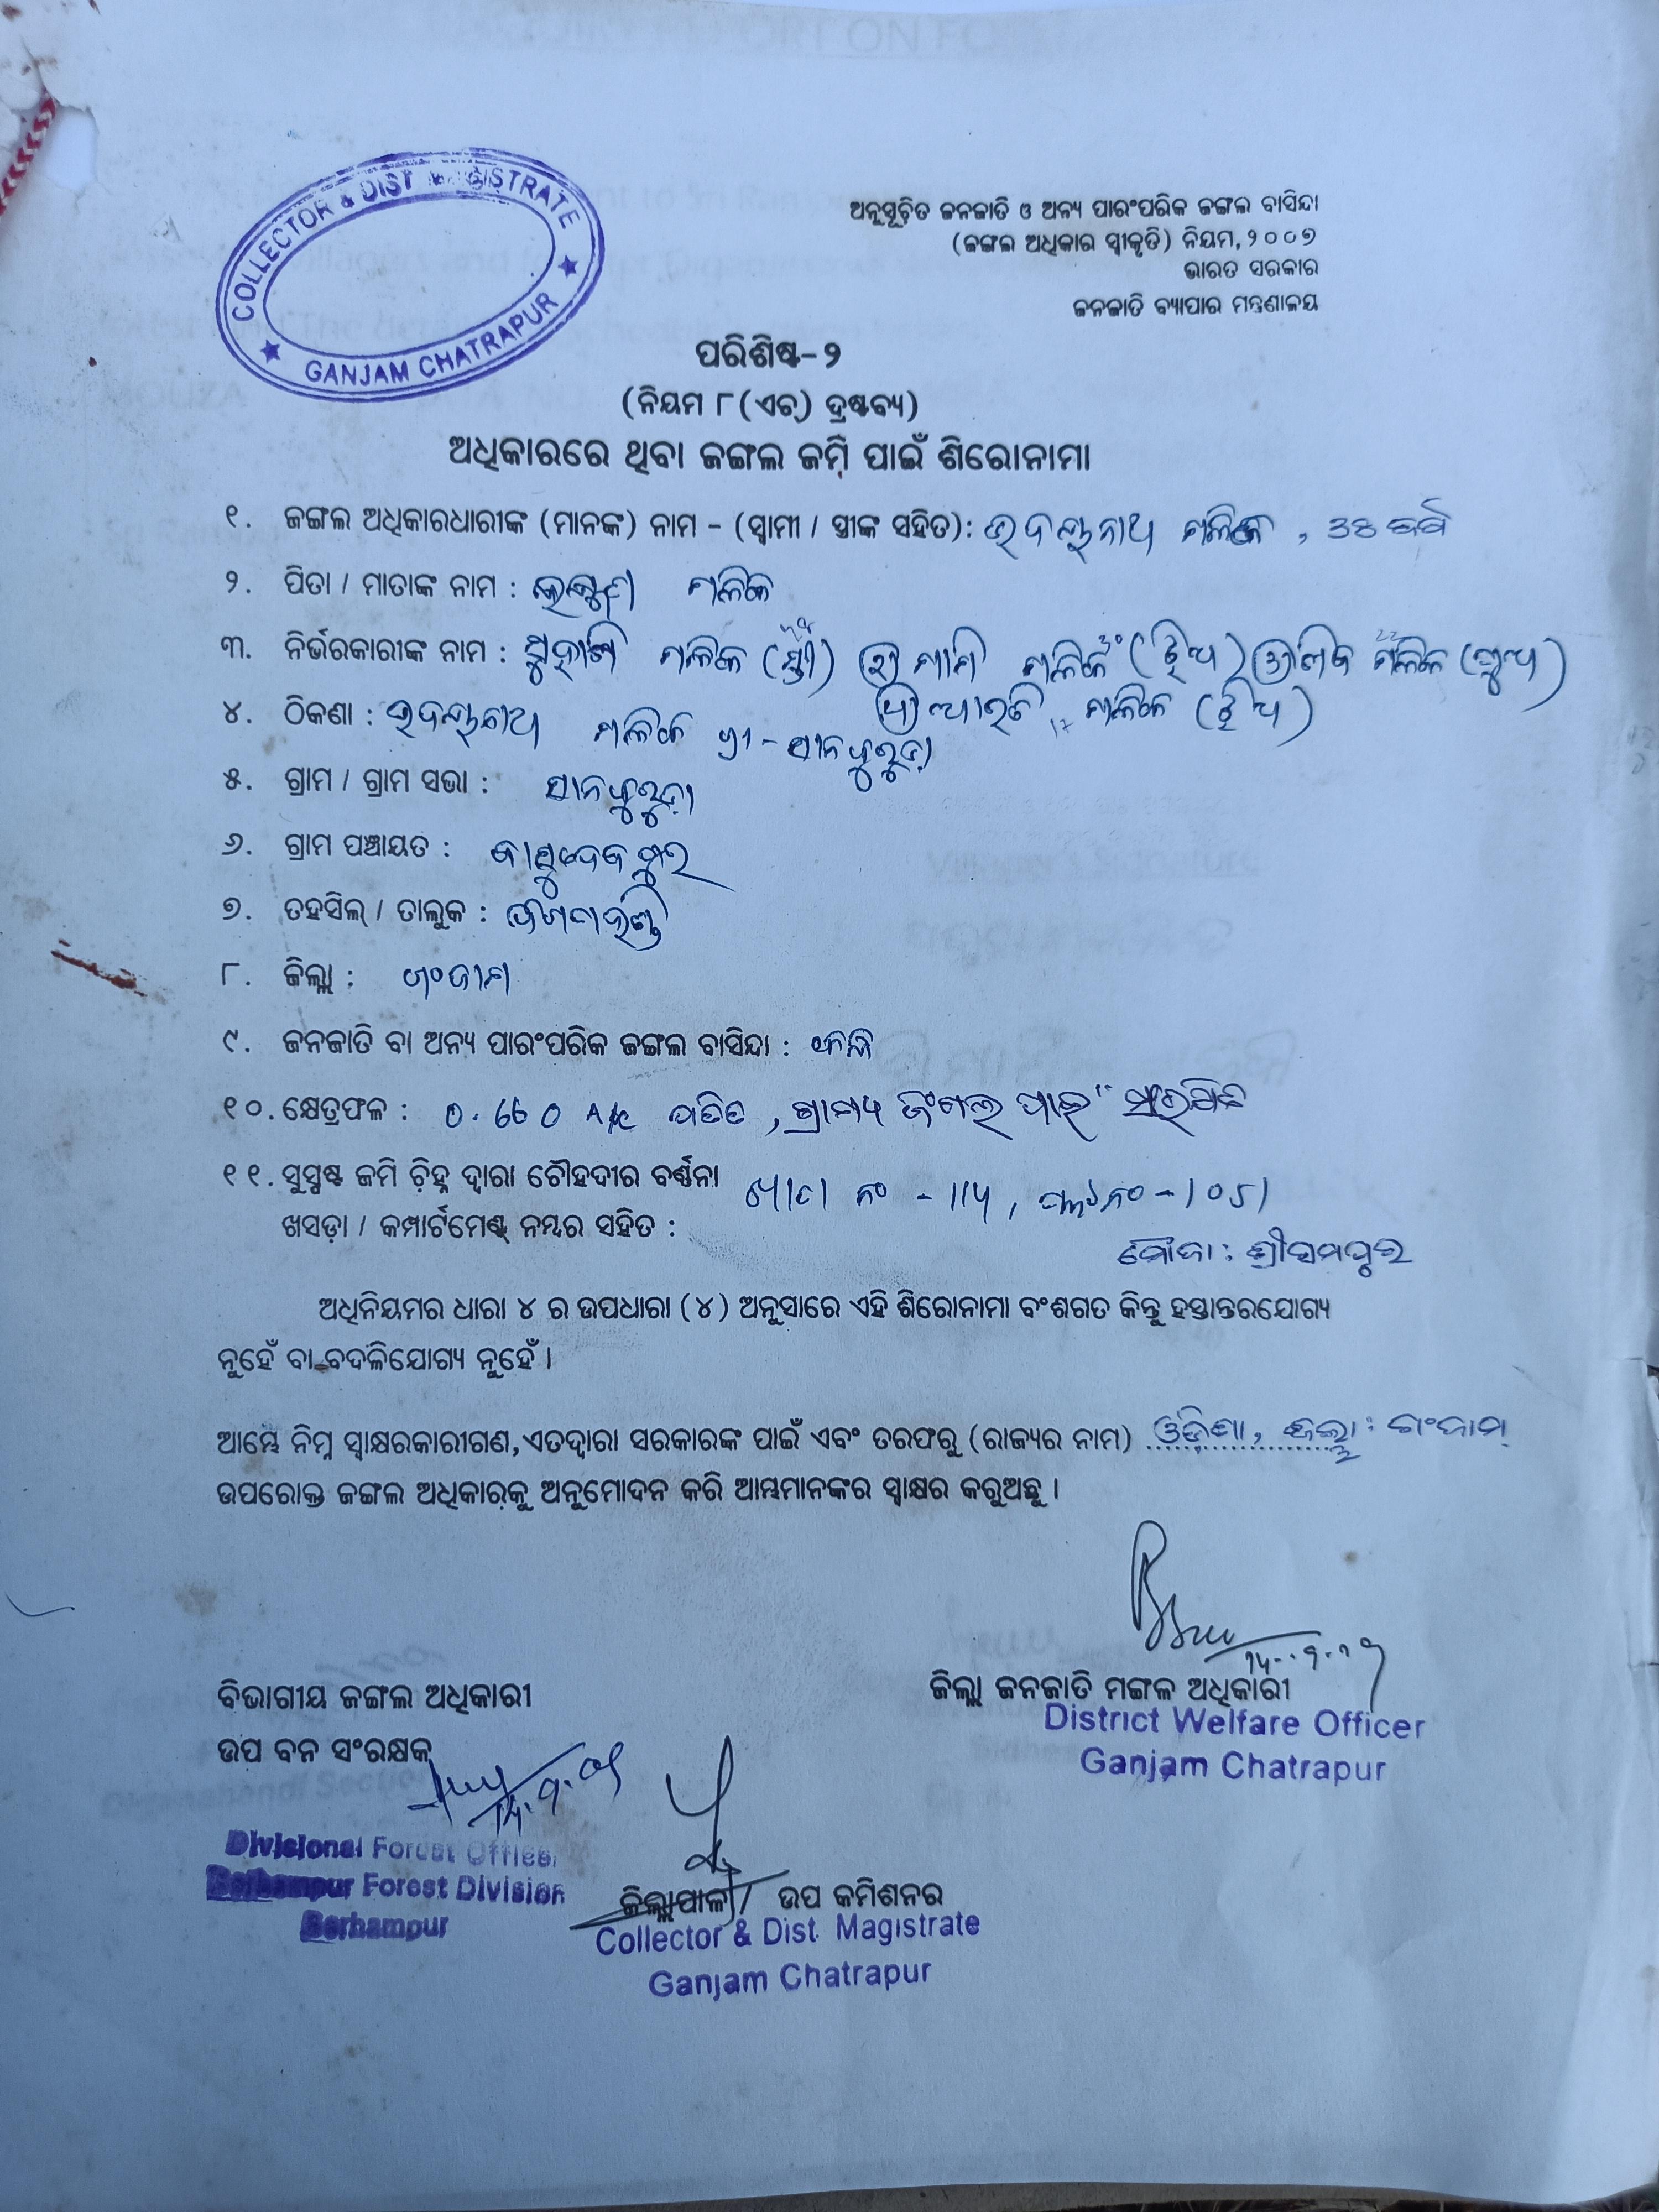 COLLECTOR & DIST MAGISTRATE
GANJAM CHATRAPUR
ଅନୁସୂଚିତ ଜନଜାତି ଓ ଅନ୍ୟ ପାରଂପରିକ ଜଙ୍ଗଲ ବାସିନ୍ଦା
(ଜଙ୍ଗଲ ଅଧିକାର ସ୍ୱୀକୃତି) ନିୟମ, ୨୦୦୭
ଭାରତ ସରକାର
ଜନଜାତି ବ୍ୟାପାର ମନ୍ତ୍ରଣାଳୟ
ପରିଶିଷ୍ଟ-୨
(ନିୟମ ୮(ଏଚ୍) ଦ୍ରଷ୍ଟବ୍ୟ)
ଅଧିକାରରେ ଥିବା ଜଙ୍ଗଲ ଜମି ପାଇଁ ଶିରୋନାମା
୧. ଜଙ୍ଗଲ ଅଧିକାରଧାରୀଙ୍କ (ମାନଙ୍କ) ନାମ - (ସ୍ୱାମୀ / ସ୍ତ୍ରୀଙ୍କ ସହିତ): ମଲିକ
୨. ପିତା / ମାତାଙ୍କ ନାମ : ଲକ୍ଷ୍ମଣ ମଲିକ
୩. ନିର୍ଭରକାରୀଙ୍କ ନାମ : ମଲିକ (ସ୍ତ୍ରୀ) ମଲିକ (ଝିଅ) ମଲିକ (ପୁଅ)
ଆରତି ମଲିକ (ଝିଅ)
୪. ଠିକଣା : ମଲିକ
୫. ଗ୍ରାମ / ଗ୍ରାମ ସଭା :
୬. ଗ୍ରାମ ପଞ୍ଚାୟତ : ବାସୁଦେବପୁର
୭. ତହସିଲ୍ / ତାଲୁକ : ଦିଗପହଣ୍ଡି
୮. ଜିଲ୍ଲା : ଗଂଜାମ
୯. ଜନଜାତି ବା ଅନ୍ୟ ପାରଂପରିକ ଜଙ୍ଗଲ ବାସିନ୍ଦା :
୧୦. କ୍ଷେତ୍ରଫଳ : 0.660 A/c ପତିତ, ଗ୍ରାମ୍ୟ ଜଂଗଲ ପାଇଁ
୧୧. ସୁସ୍ପଷ୍ଟ ଜମି ଚିହ୍ନ ଦ୍ୱାରା ଚୌହଦୀର ବର୍ଣ୍ଣନା ଖାତା ନଂ
ଖସଡ଼ା / କମ୍ପାର୍ଟମେଣ୍ଟ୍ ନମ୍ବର ସହିତ :
ମୌଜା :
ଅଧିନିୟମର ଧାରା ୪ ର ଉପଧାରା (୪) ଅନୁସାରେ ଏହି ଶିରୋନାମା ବଂଶଗତ କିନ୍ତୁ ହସ୍ତାନ୍ତରଯୋଗ୍ୟ
ନୁହେଁ ବା ବଦଳିଯୋଗ୍ୟ ନୁହେଁ ।
ଆମ୍ଭେ ନିମ୍ନ ସ୍ୱାକ୍ଷରକାରୀଗଣ, ଏତଦ୍ୱାରା ସରକାରଙ୍କ ପାଇଁ ଏବଂ ତରଫରୁ (ରାଜ୍ୟର ନାମ) ଓଡିଶା, ଜିଲ୍ଲା: ଗଂଜାମ୍
ଉପରୋକ୍ତ ଜଙ୍ଗଲ ଅଧିକାରକୁ ଅନୁମୋଦନ କରି ଆମ୍ଭମାନଙ୍କର ସ୍ୱାକ୍ଷର କରୁଅଛୁ ।
ବିଭାଗୀୟ ଜଙ୍ଗଲ ଅଧିକାରୀ
ଉପ ବନ ସଂରକ୍ଷକ
Divisional Forest Officer
Berhampur Forest Division
Berhampur
ଜିଲ୍ଲା ଜନଜାତି ମଙ୍ଗଳ ଅଧିକାରୀ
District Welfare Officer
Ganjam Chatrapur
ଜିଲ୍ଲାପାଳ / ଉପ କମିଶନର
Collector & Dist. Magistrate
Ganjam Chatrapur